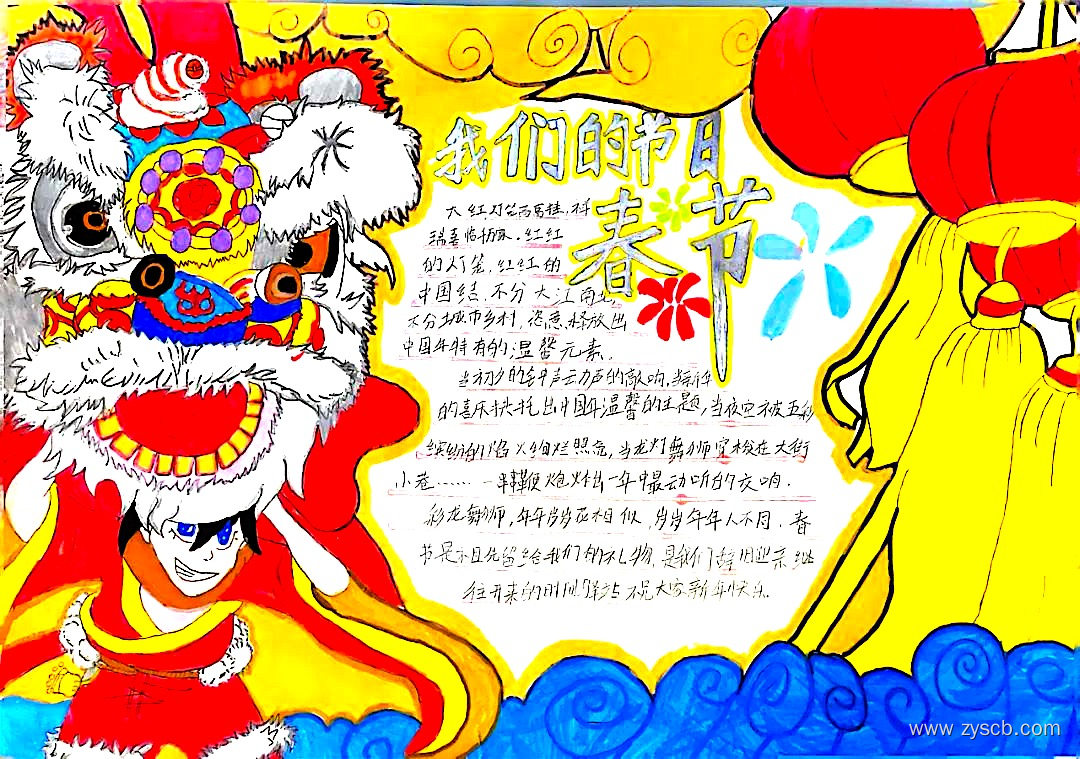 我们的节日
春节
大红灯笼高高挂,
瑞喜临门 红红
的灯笼,红红的
中国结,不分大江南北,
不分城市乡村,恣意释放出
中国年特有的温馨元素。
当初夕的钟声 的敲响,当
的喜庆 出中国年温馨的主题,当夜空被五彩
缤纷的焰火绚烂照亮,当龙灯舞狮穿梭在大街
小巷……一串鞭炮炸出一年中最动听的交响.
彩龙舞狮,年年岁岁花相似,岁岁年年人不同.春
节是 祖先留给我们的礼物,是我们辞旧迎亲继
往开来的时间 祝大家新年快乐.
www.zyscb.com